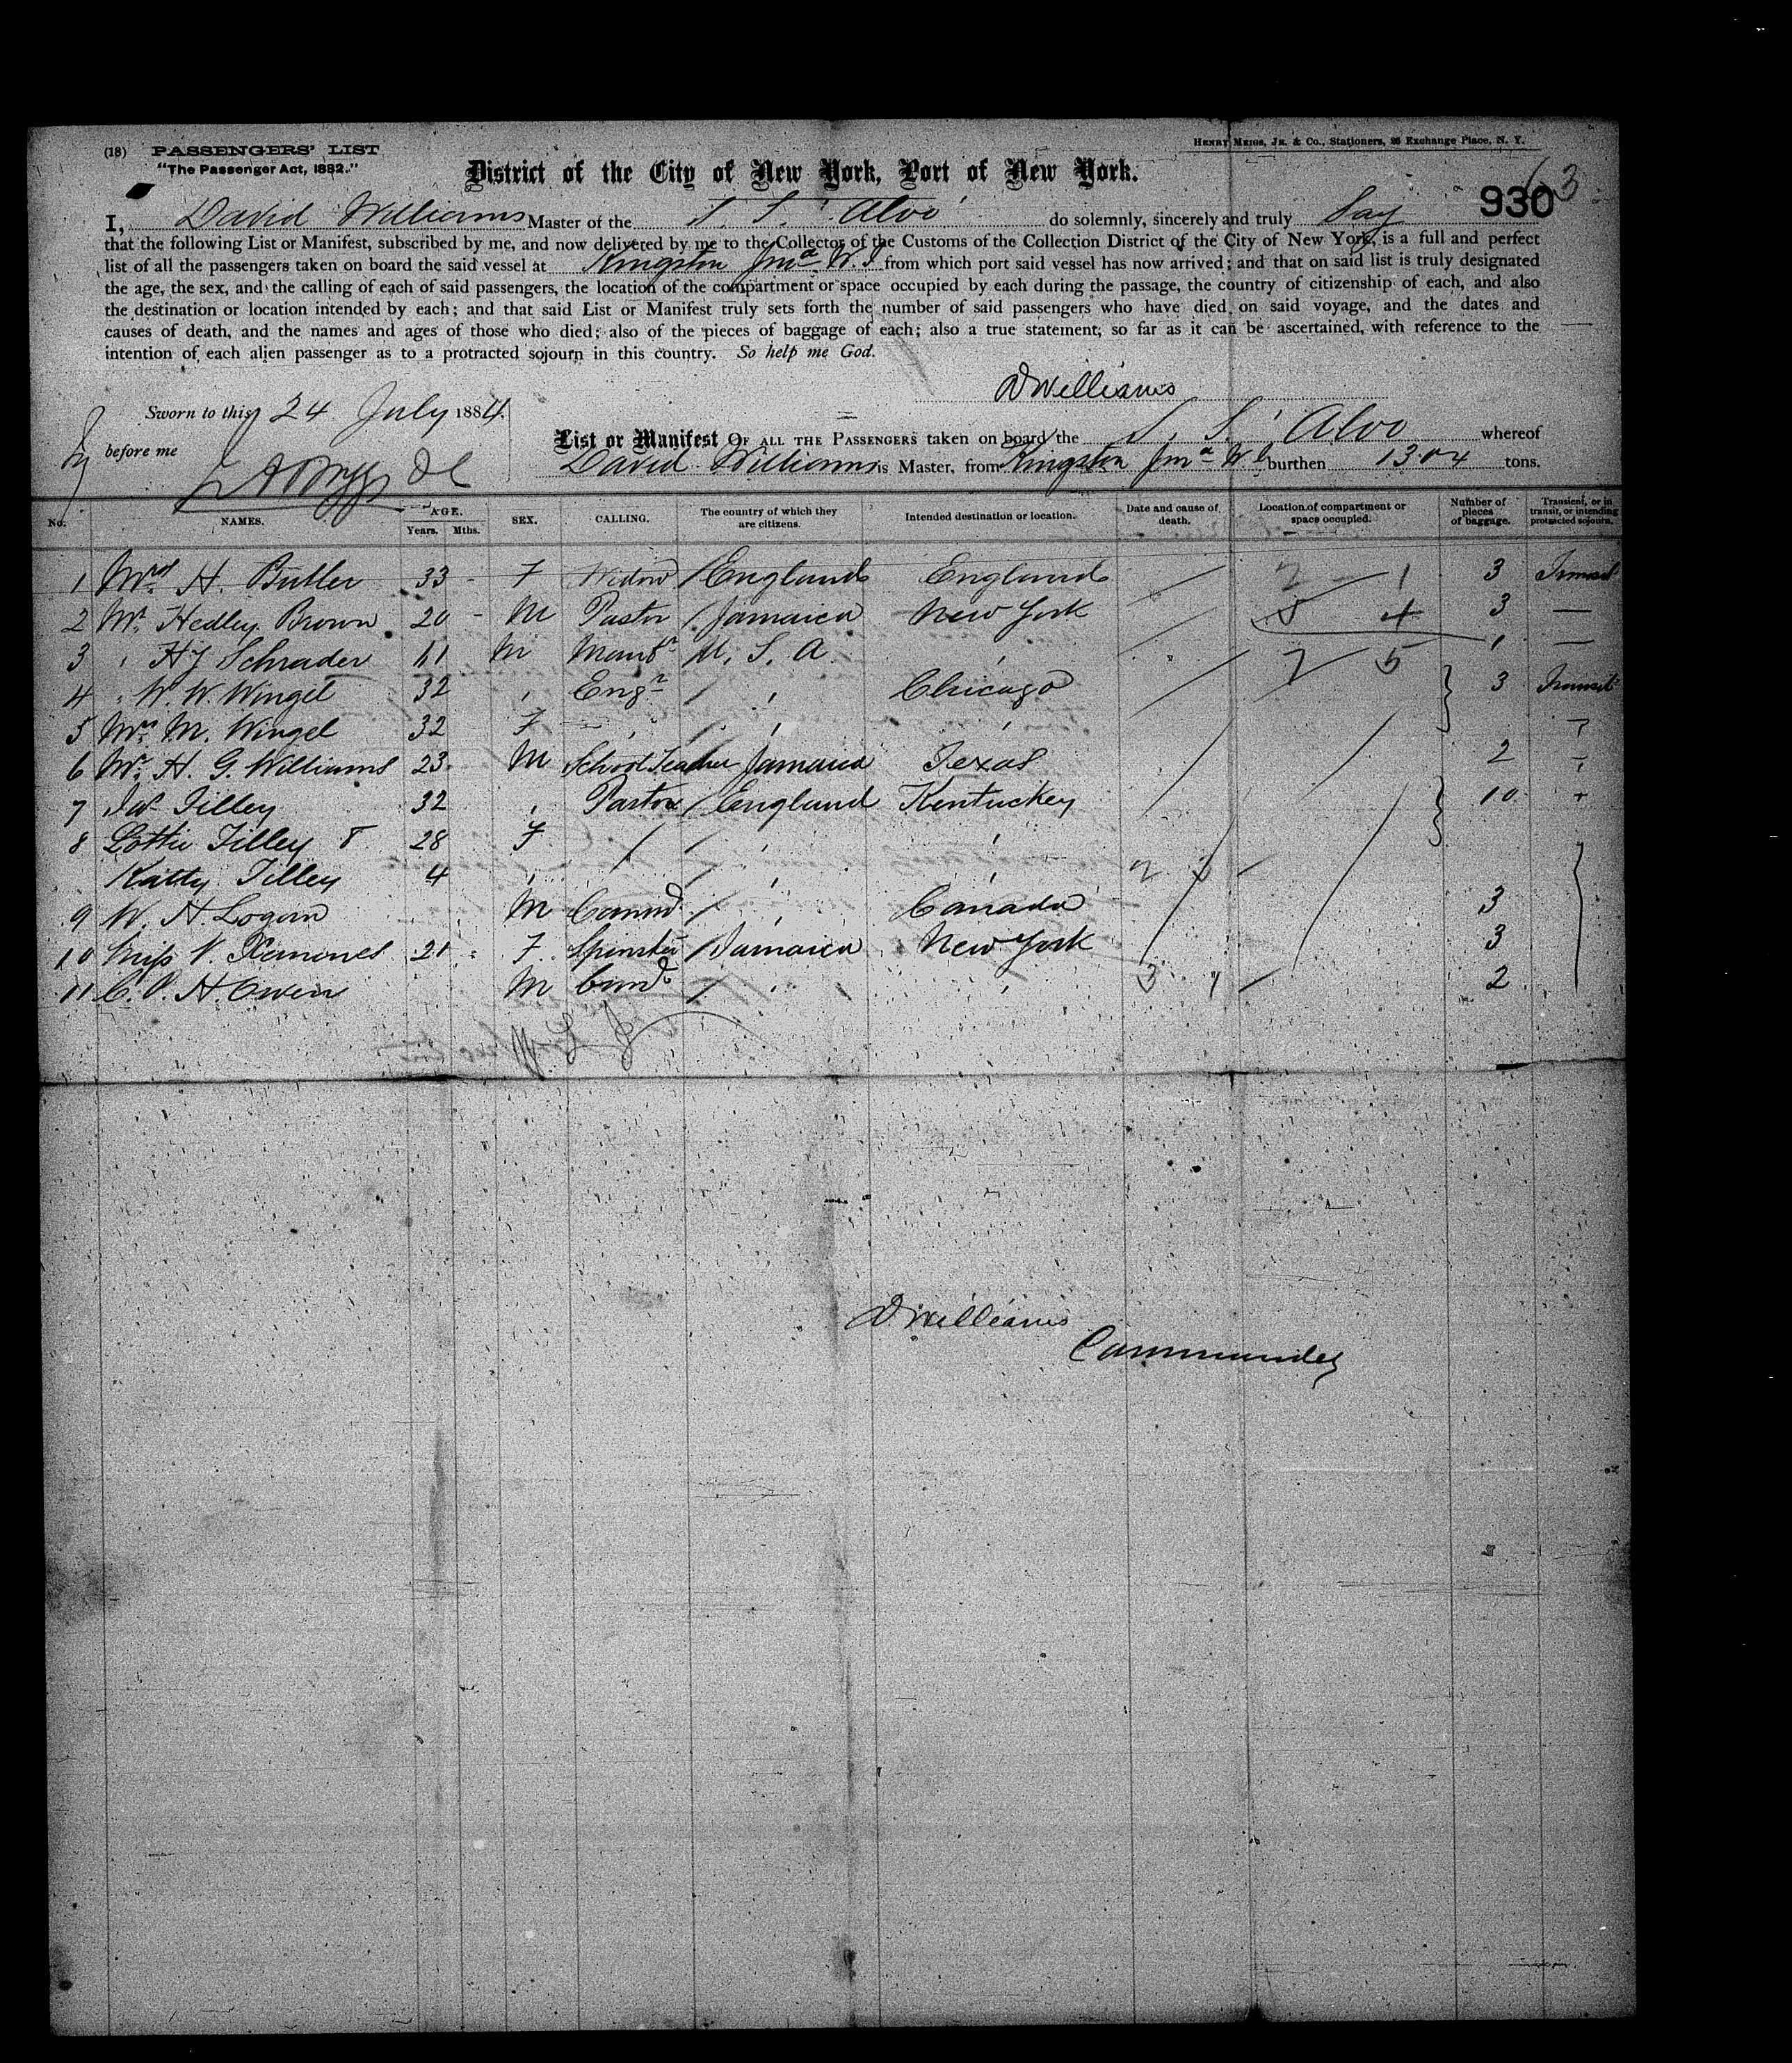 (18) PASSENGERS' LIST
HENRY MEIGS, JR. & Co., Stationers, 26 Exchange Place, N. Y.
"The Passenger Act, 1882."
District of the City of New York, Port of New York.
930
I, David Williams Master of the S. S. 'Alvo' do solemnly, sincerely and truly Say
that the following List or Manifest, subscribed by me, and now delivered by me to the Collector of the Customs of the Collection District of the City of New York, is a full and perfect
list of all the passengers taken on board the said vessel at Kingston Jma W. I from which port said vessel has now arrived; and that on said list is truly designated
the age, the sex, and the calling of each of said passengers, the location of the compartment or space occupied by each during the passage, the country of citizenship of each, and also
the destination or location intended by each; and that said List or Manifest truly sets forth the number of said passengers who have died on said voyage, and the dates and
causes of death, and the names and ages of those who died; also of the pieces of baggage of each; also a true statement, so far as it can be ascertained, with reference to the
intention of each alien passenger as to a protracted sojourn in this country. So help me God.
DWilliams
Sworn to this 24 July 1884.
before me
List or Manifest OF ALL THE PASSENGERS taken on board the S. S. 'Alvo whereof
David Williams is Master, from Kingston Jma W I burthen 1304 tons.
No. NAMES. AGE. Years. Mths. SEX. CALLING. The country of which they are citizens. Intended destination or location. Date and cause of death. Location of compartment or space occupied. Number of pieces of baggage. Transient, or in transit, or intending protracted sojourn.
1 Mrs H. Butler 33 - F Widow / England England 2 - 1 3
2 Mr. Hedley Brown 20 - M Pastor / Jamaica New York 4 3 —
3 " H J Schrader M U. S. A " 7 5 1 —
4 " W. W. Wingel 32 " Engr / " Chicago 3 Transit
5 Mrs M. Wingel 32 F " / " "
6 Mr. H. G. Williams 23 M School Teacher Jamaica Texas 2 "
7 Tilley 32 " Pastor / England Kentuckey 10
8 Lottie Tilley 28 F / / " "
Katty Tilley 4 " " / " " 2
9 W. H. Logan M / " Canada 3
10 Miss V. 21 F Spinster / Jamaica New York 3
11 C. P. H. Owen M / " " 3 2
DWilliams
Commander